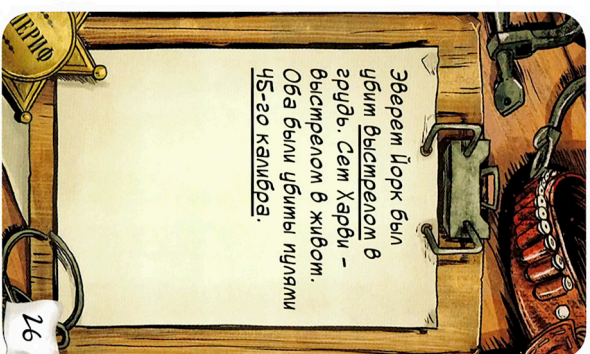 Эверет Йорк был
убит выстрелом в
грудь. Сет Харви –
выстрелом в живот.
Оба были убиты пулями
45-го калибра.
ШЕРИФ
26